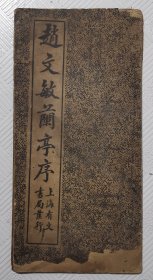 趙文敏蘭亭序
上海有正
書局發行